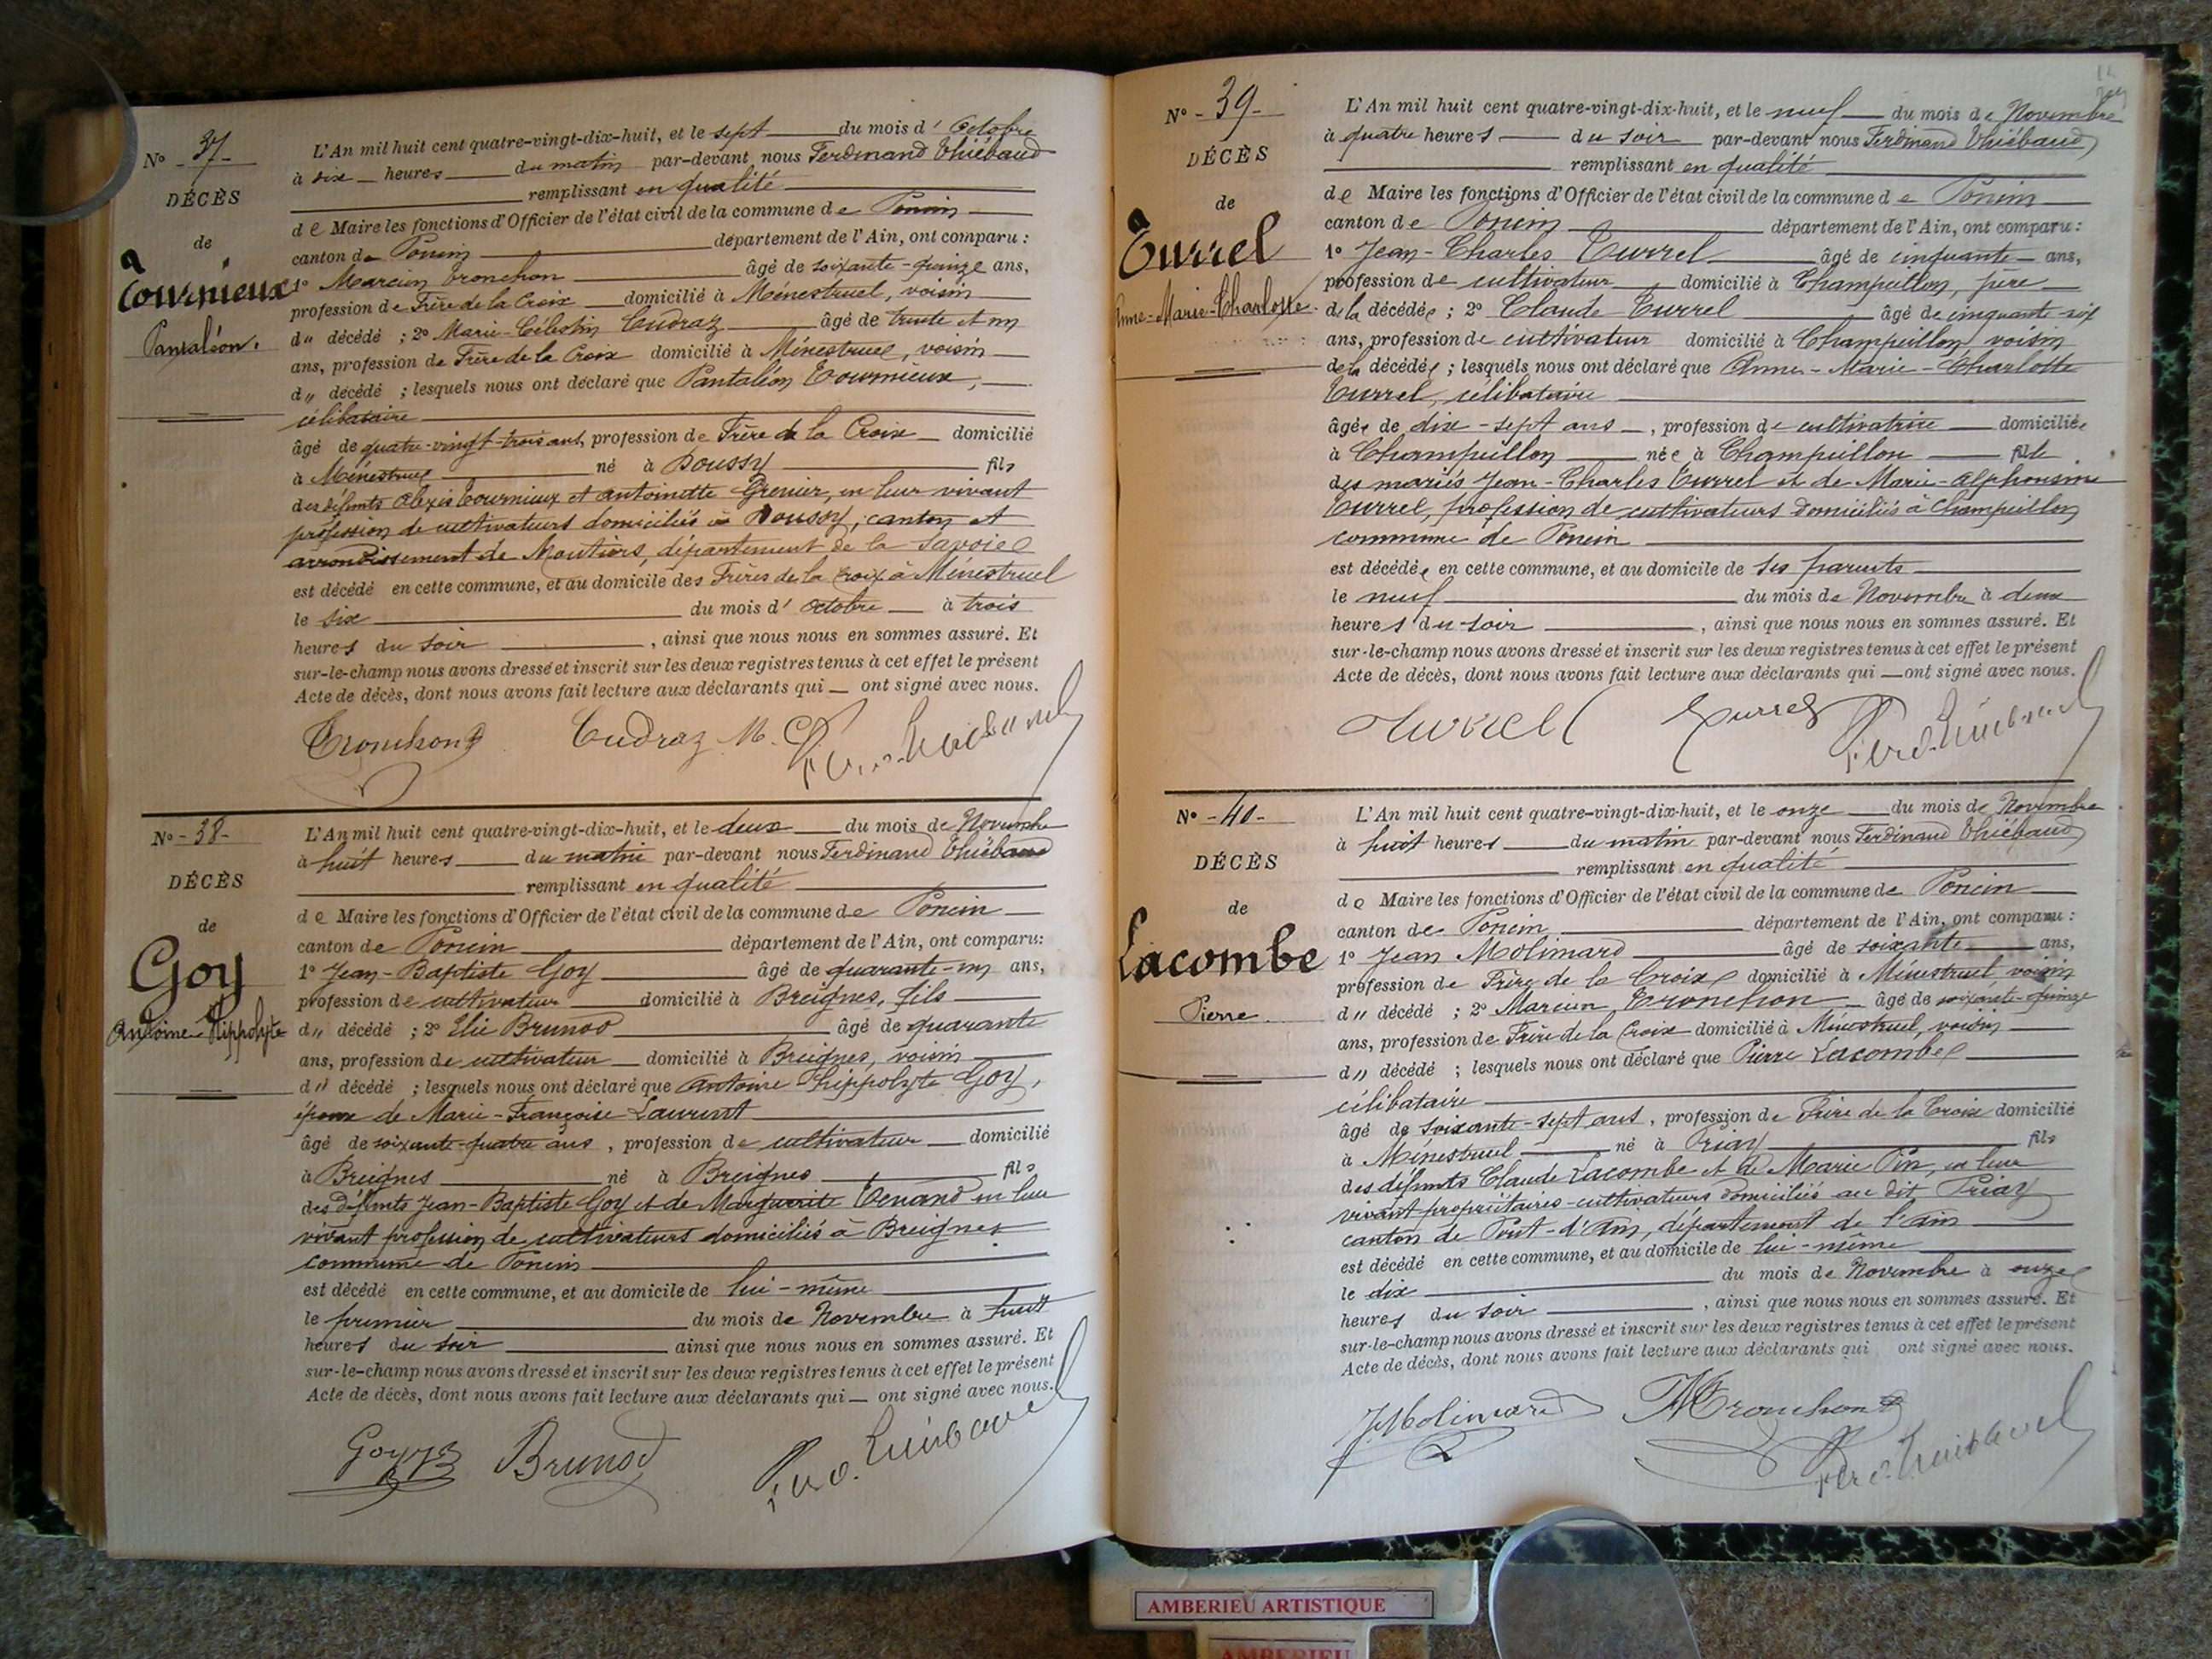 N° - 37 -
DÉCÈS
de
Tournieux
Pantaléon.
L'An mil huit cent quatre-vingt-dix-huit, et le sept du mois d' Octobre
à dix heures du matin par-devant nous Ferdinand Thiébaud
remplissant en qualité
de Maire les fonctions d'Officier de l'état civil de la commune de Poncin
canton de Poncin département de l'Ain, ont comparu :
1° Marcien Tronchon âgé de soixante-quinze ans,
profession de Frère de la Croix domicilié à Ménestruel, voisin
du décédé ; 2° Marie-Célestin Cudraz âgé de trente et un
ans, profession de Frère de la Croix domicilié à Ménestruel, voisin
du décédé ; lesquels nous ont déclaré que Pantaléon Tournieux,
célibataire
âgé de quatre-vingt-trois ans, profession de Frère de la Croix domicilié
à Ménestruel né à Doussy fils
des défunts Alexis Tournieux et Antoinette Grenier, en leur vivant
profession de cultivateurs domiciliés à Doussy, canton et
arrondissement de Moutiers, département de la Savoie
est décédé en cette commune, et au domicile des Frères de la Croix à Ménestruel
le six du mois d' Octobre à trois
heures du soir , ainsi que nous nous en sommes assuré. Et
sur-le-champ nous avons dressé et inscrit sur les deux registres tenus à cet effet le présent
Acte de décès, dont nous avons fait lecture aux déclarants qui ont signé avec nous.
Tronchon Cudraz M. C. Ferd. Thiébaud
N° - 38 -
DÉCÈS
de
Goy
Antoine-Hippolyte
L'An mil huit cent quatre-vingt-dix-huit, et le deux du mois de Novembre
à huit heures du matin par-devant nous Ferdinand Thiébaud
remplissant en qualité
de Maire les fonctions d'Officier de l'état civil de la commune de Poncin
canton de Poncin département de l'Ain, ont comparu:
1° Jean-Baptiste Goy âgé de quarante-un ans,
profession de cultivateur domicilié à Breignes, fils
du décédé ; 2° Elie Brunod âgé de quarante
ans, profession de cultivateur domicilié à Breignes, voisin
du décédé ; lesquels nous ont déclaré que Antoine Hippolyte Goy,
époux de Marie-Françoise Laurent
âgé de soixante-quatre ans, profession de cultivateur domicilié
à Breignes né à Breignes fils
des défunts Jean-Baptiste Goy et de Marguerite Venand en leur
vivant profession de cultivateurs domiciliés à Breignes
commune de Poncin
est décédé en cette commune, et au domicile de lui-même
le premier du mois de Novembre à huit
heures du soir ainsi que nous nous en sommes assuré. Et
sur-le-champ nous avons dressé et inscrit sur les deux registres tenus à cet effet le présent
Acte de décès, dont nous avons fait lecture aux déclarants qui ont signé avec nous.
Goy Brunod Ferd. Thiébaud
N° - 39 -
DÉCÈS
de
Turrel
Anne-Marie-Charlotte
L'An mil huit cent quatre-vingt-dix-huit, et le neuf du mois de Novembre
à quatre heures du soir par-devant nous Ferdinand Thiébaud
remplissant en qualité
de Maire les fonctions d'Officier de l'état civil de la commune de Poncin
canton de Poncin département de l'Ain, ont comparu :
1° Jean-Charles Turrel âgé de cinquante ans,
profession de cultivateur domicilié à Champeillon, père
de la décédée ; 2° Claude Turrel âgé de cinquante-six
ans, profession de cultivateur domicilié à Champeillon voisin
de la décédée ; lesquels nous ont déclaré que Anne-Marie-Charlotte
Turrel, célibataire
âgée de dix-sept ans, profession de cultivatrice domiciliée
à Champeillon née à Champeillon fille
des mariés Jean-Charles Turrel et de Marie-Alphonsine
Turrel, profession de cultivateurs domiciliés à Champeillon
commune de Poncin
est décédée en cette commune, et au domicile de ses parents
le neuf du mois de Novembre à deux
heures du soir , ainsi que nous nous en sommes assuré. Et
sur-le-champ nous avons dressé et inscrit sur les deux registres tenus à cet effet le présent
Acte de décès, dont nous avons fait lecture aux déclarants qui ont signé avec nous.
Turrel Turrel Ferd. Thiébaud
N° - 40 -
DÉCÈS
de
Lacombe
Pierre
L'An mil huit cent quatre-vingt-dix-huit, et le onze du mois de Novembre
à huit heures du matin par-devant nous Ferdinand Thiébaud
remplissant en qualité
de Maire les fonctions d'Officier de l'état civil de la commune de Poncin
canton de Poncin département de l'Ain, ont comparu :
1° Jean Molimard âgé de soixante ans,
profession de Frère de la Croix domicilié à Ménestruel voisin
du décédé ; 2° Marcien Tronchon âgé de soixante-quinze
ans, profession de Frère de la Croix domicilié à Ménestruel, voisin
du décédé ; lesquels nous ont déclaré que Pierre Lacombe
célibataire
âgé de soixante-sept ans, profession de Frère de la Croix domicilié
à Ménestruel né à Priay fils
des défunts Claude Lacombe et de Marie Pin, en leur
vivant propriétaires-cultivateurs domiciliés au dit Priay
canton de Pont-d'Ain, département de l'Ain
est décédé en cette commune, et au domicile de lui-même
le dix du mois de Novembre à onze
heures du soir , ainsi que nous nous en sommes assuré. Et
sur-le-champ nous avons dressé et inscrit sur les deux registres tenus à cet effet le présent
Acte de décès, dont nous avons fait lecture aux déclarants qui ont signé avec nous.
J. Molimard M Tronchon Ferd. Thiébaud
AMBERIEU ARTISTIQUE
AMBERIEU